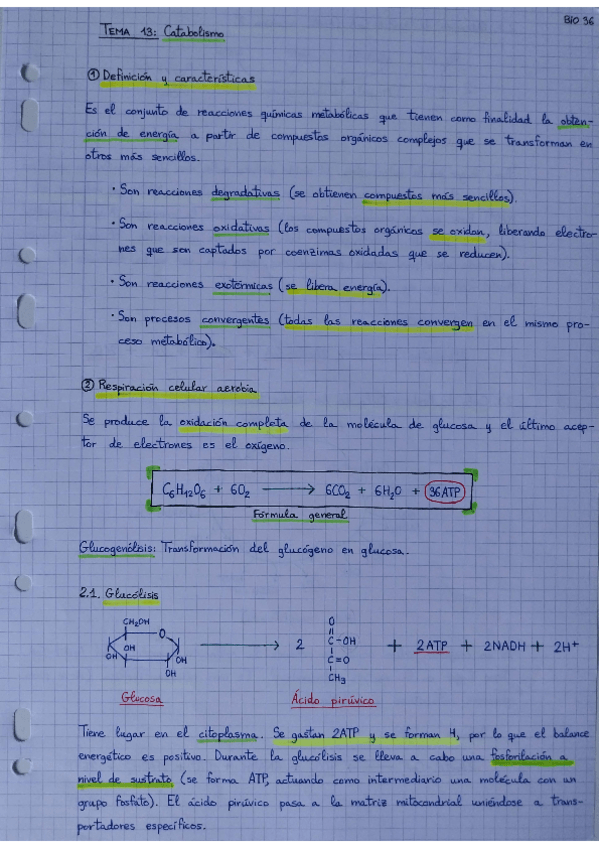 BIO 36
TEMA 13: Catabolismo
① Definición y características
Es el conjunto de reacciones químicas metabólicas que tienen como finalidad la obten-
ción de energía a partir de compuestos orgánicos complejos que se transforman en
otros más sencillos.
· Son reacciones degradativas (se obtienen compuestos más sencillos).
· Son reacciones oxidativas (los compuestos orgánicos se oxidan, liberando electro-
nes que son captados por coenzimas oxidadas que se reducen).
· Son reacciones exotérmicas (se libera energía).
· Son procesos convergentes (todas las reacciones convergen en el mismo pro-
ceso metabólico).
② Respiración celular aerobia
Se produce la oxidación completa de la molécula de glucosa y el último acep-
tor de electrones es el oxígeno.
C₆H₁₂O₆ + 6O₂ → 6CO₂ + 6H₂O + 36ATP
Fórmula general
Glucogenólisis: Transformación del glucógeno en glucosa.
2.1. Glucólisis
CH₂OH
O
OH
OH
OH
OH
→ 2
O
C-OH
C=O
CH₃
+ 2ATP + 2NADH + 2H⁺
Glucosa
Ácido pirúvico
Tiene lugar en el citoplasma. Se gastan 2ATP y se forman 4, por lo que el balance
energético es positivo. Durante la glucólisis se lleva a cabo una fosforilación a
nivel de sustrato (se forma ATP, actuando como intermediario una molécula con un
grupo fosfato). El ácido pirúvico pasa a la matriz mitocondrial uniéndose a trans-
portadores específicos.